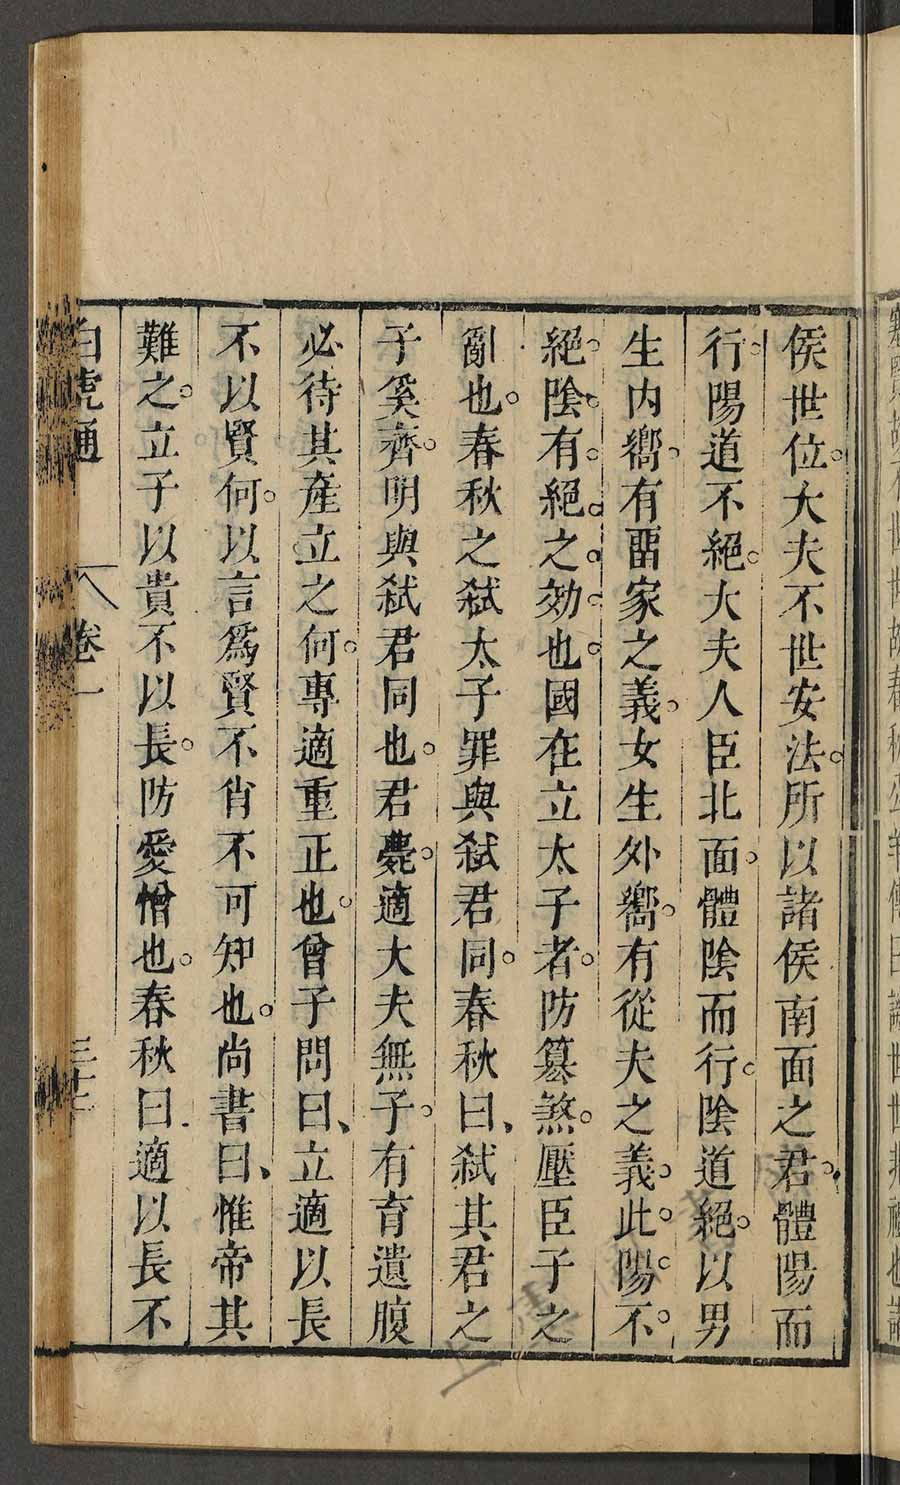 侯世位。大夫不世安法。所以諸侯南面之君。體陽而
行。陽道不絕。大夫人臣北面。體陰而行。陰道絕。以男
生内嚮。有畱家之義。女生外嚮。有從夫之義。此。陽。不。
絕。陰。有。絕。之。効。也。國在立太子者。防簒煞。壓臣子之
亂也。春秋之弑太子罪與弑君同。春秋曰、弑其君之
子奚齊。明與弑君同也。君薨。適大夫無子。有育遺腹
必待其產立之何。專適重正也。曾子問曰、立適以長
不以賢何。以言爲賢不肖不可知也。尚書曰、惟帝其
難之。立子以貴不以長。防愛憎也。春秋曰適以長不
白虎通 卷一